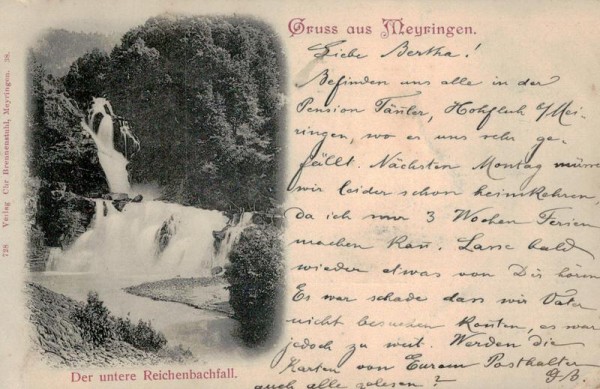 Gruss aus Meyringen.
Liebe Bertha!
Befinden uns alle in der
Pension Täuler, Hohfluh b/Mei-
ringen, wo er uns sehr ge-
fällt. Nächsten Montag müssen
wir leider schon heimkehren,
da ich nur 3 Wochen Ferien
machen kan̄. Lasse bald
wieder etwas von Dir hören
Es war schade dass wir Vater
nicht besuchen kon̄ten, es war
jedoch zu weit. Werden die
Karten von Eurem Posthalter
auch alle gelesen?
Der untere Reichenbachfall.
728 Verlag Chr Brennenstuhl, Meyringen. 38.